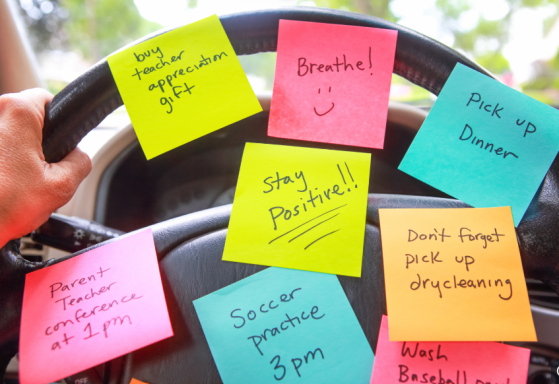 buy
teacher
appreciation
gift
Breathe!
Pick up
Dinner
Stay
Positive!!
Don't forget
pick up
drycleaning
Parent
Teacher
conference
at 1pm
Soccer
practice
3pm
Wash
Baseball